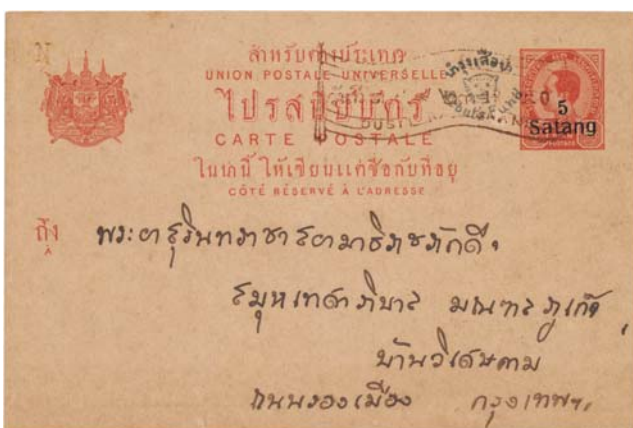 สำหรับต่างประเทศ
UNION POSTALE UNIVERSELLE
ไปรสนียบัตร
CARTE POSTALE
ในหน้านี้ ให้เขียนแต่ชื่อกับที่อยู่
CÔTÉ RÉSERVÉ À L'ADRESSE
5
Satang
ถึง
พระยาสุรินทราชา สยามาธิราชภักดี
สมุหเทศาภิบาล มณฑล ภูเก็จ
บ้านวิเศษคาม
ถนนรองเมือง กรุงเทพฯ